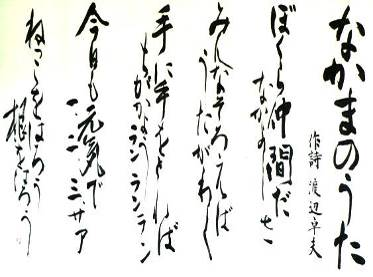 なかまのうた
作詩 渡辺卓夫
ぼくら仲間だ
なかよし
みんなそろえば
うたがわく
手に手をとれば
ランランラン
今日も元気で
一二三 ミ サア
ねっこをはろう
根をはろう